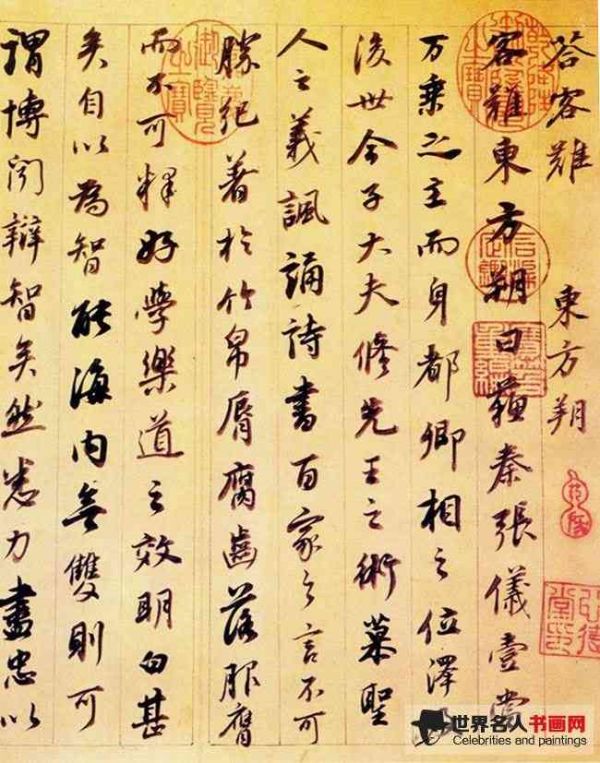 荅客難 東方朔
客難東方朔曰蘓秦張儀壹當
万乘之主而身都卿相之位澤及
後世今子大夫修先王之術慕聖
人之義諷誦詩書百家之言不可
勝紀著於竹帛脣腐齒落服膺
而不可釋好學樂道之效明白甚
矣自以為智能海内無雙則可
謂博聞辯智矣然悉力盡忠以
世界名人书画网
Celebrities and paintings